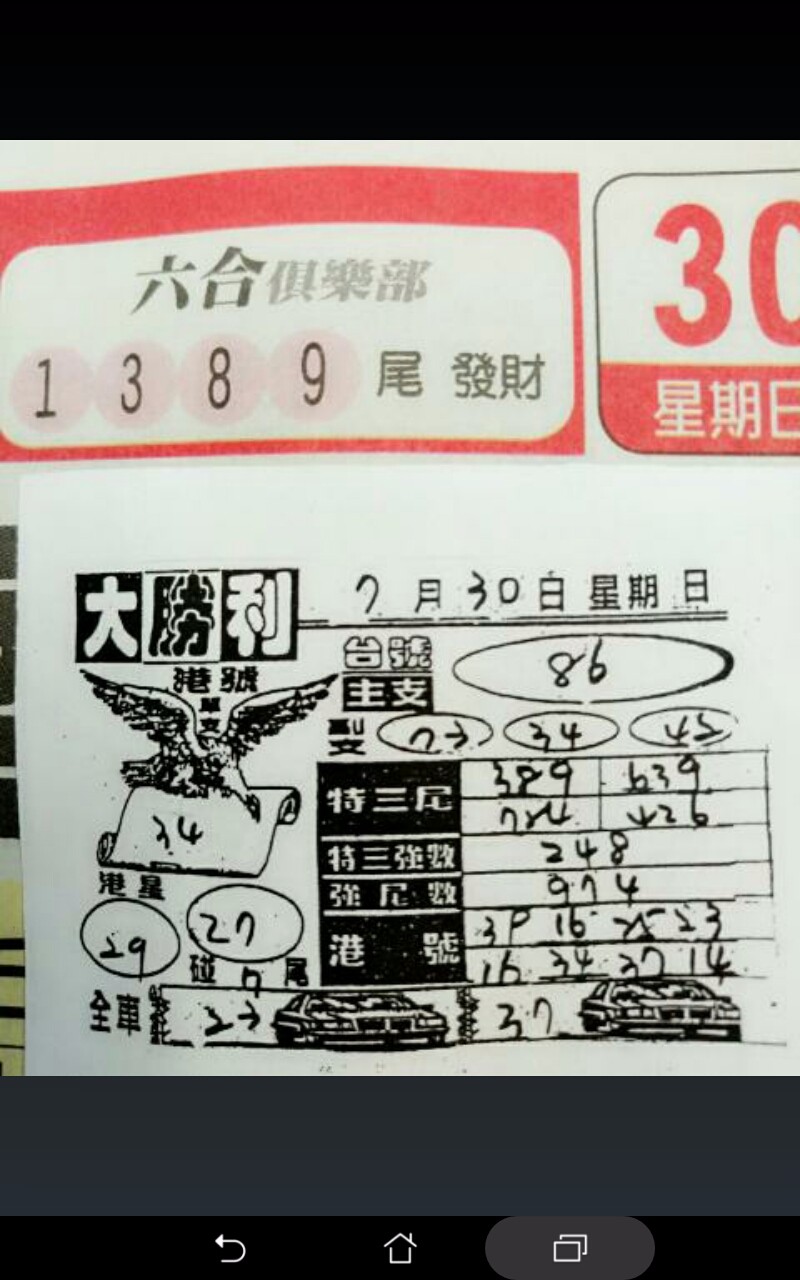 六合俱樂部
30
1 3 8 9 尾 發財
星期日
大勝利
7月30日星期日
港號
單支
台號
主支
86
副支
34
特三尾
389 639
426
34
特三強數
248
港星
強尾數
974
29
27
港號
16 25 23
碰 7 尾
16 34 37 14
全車
37